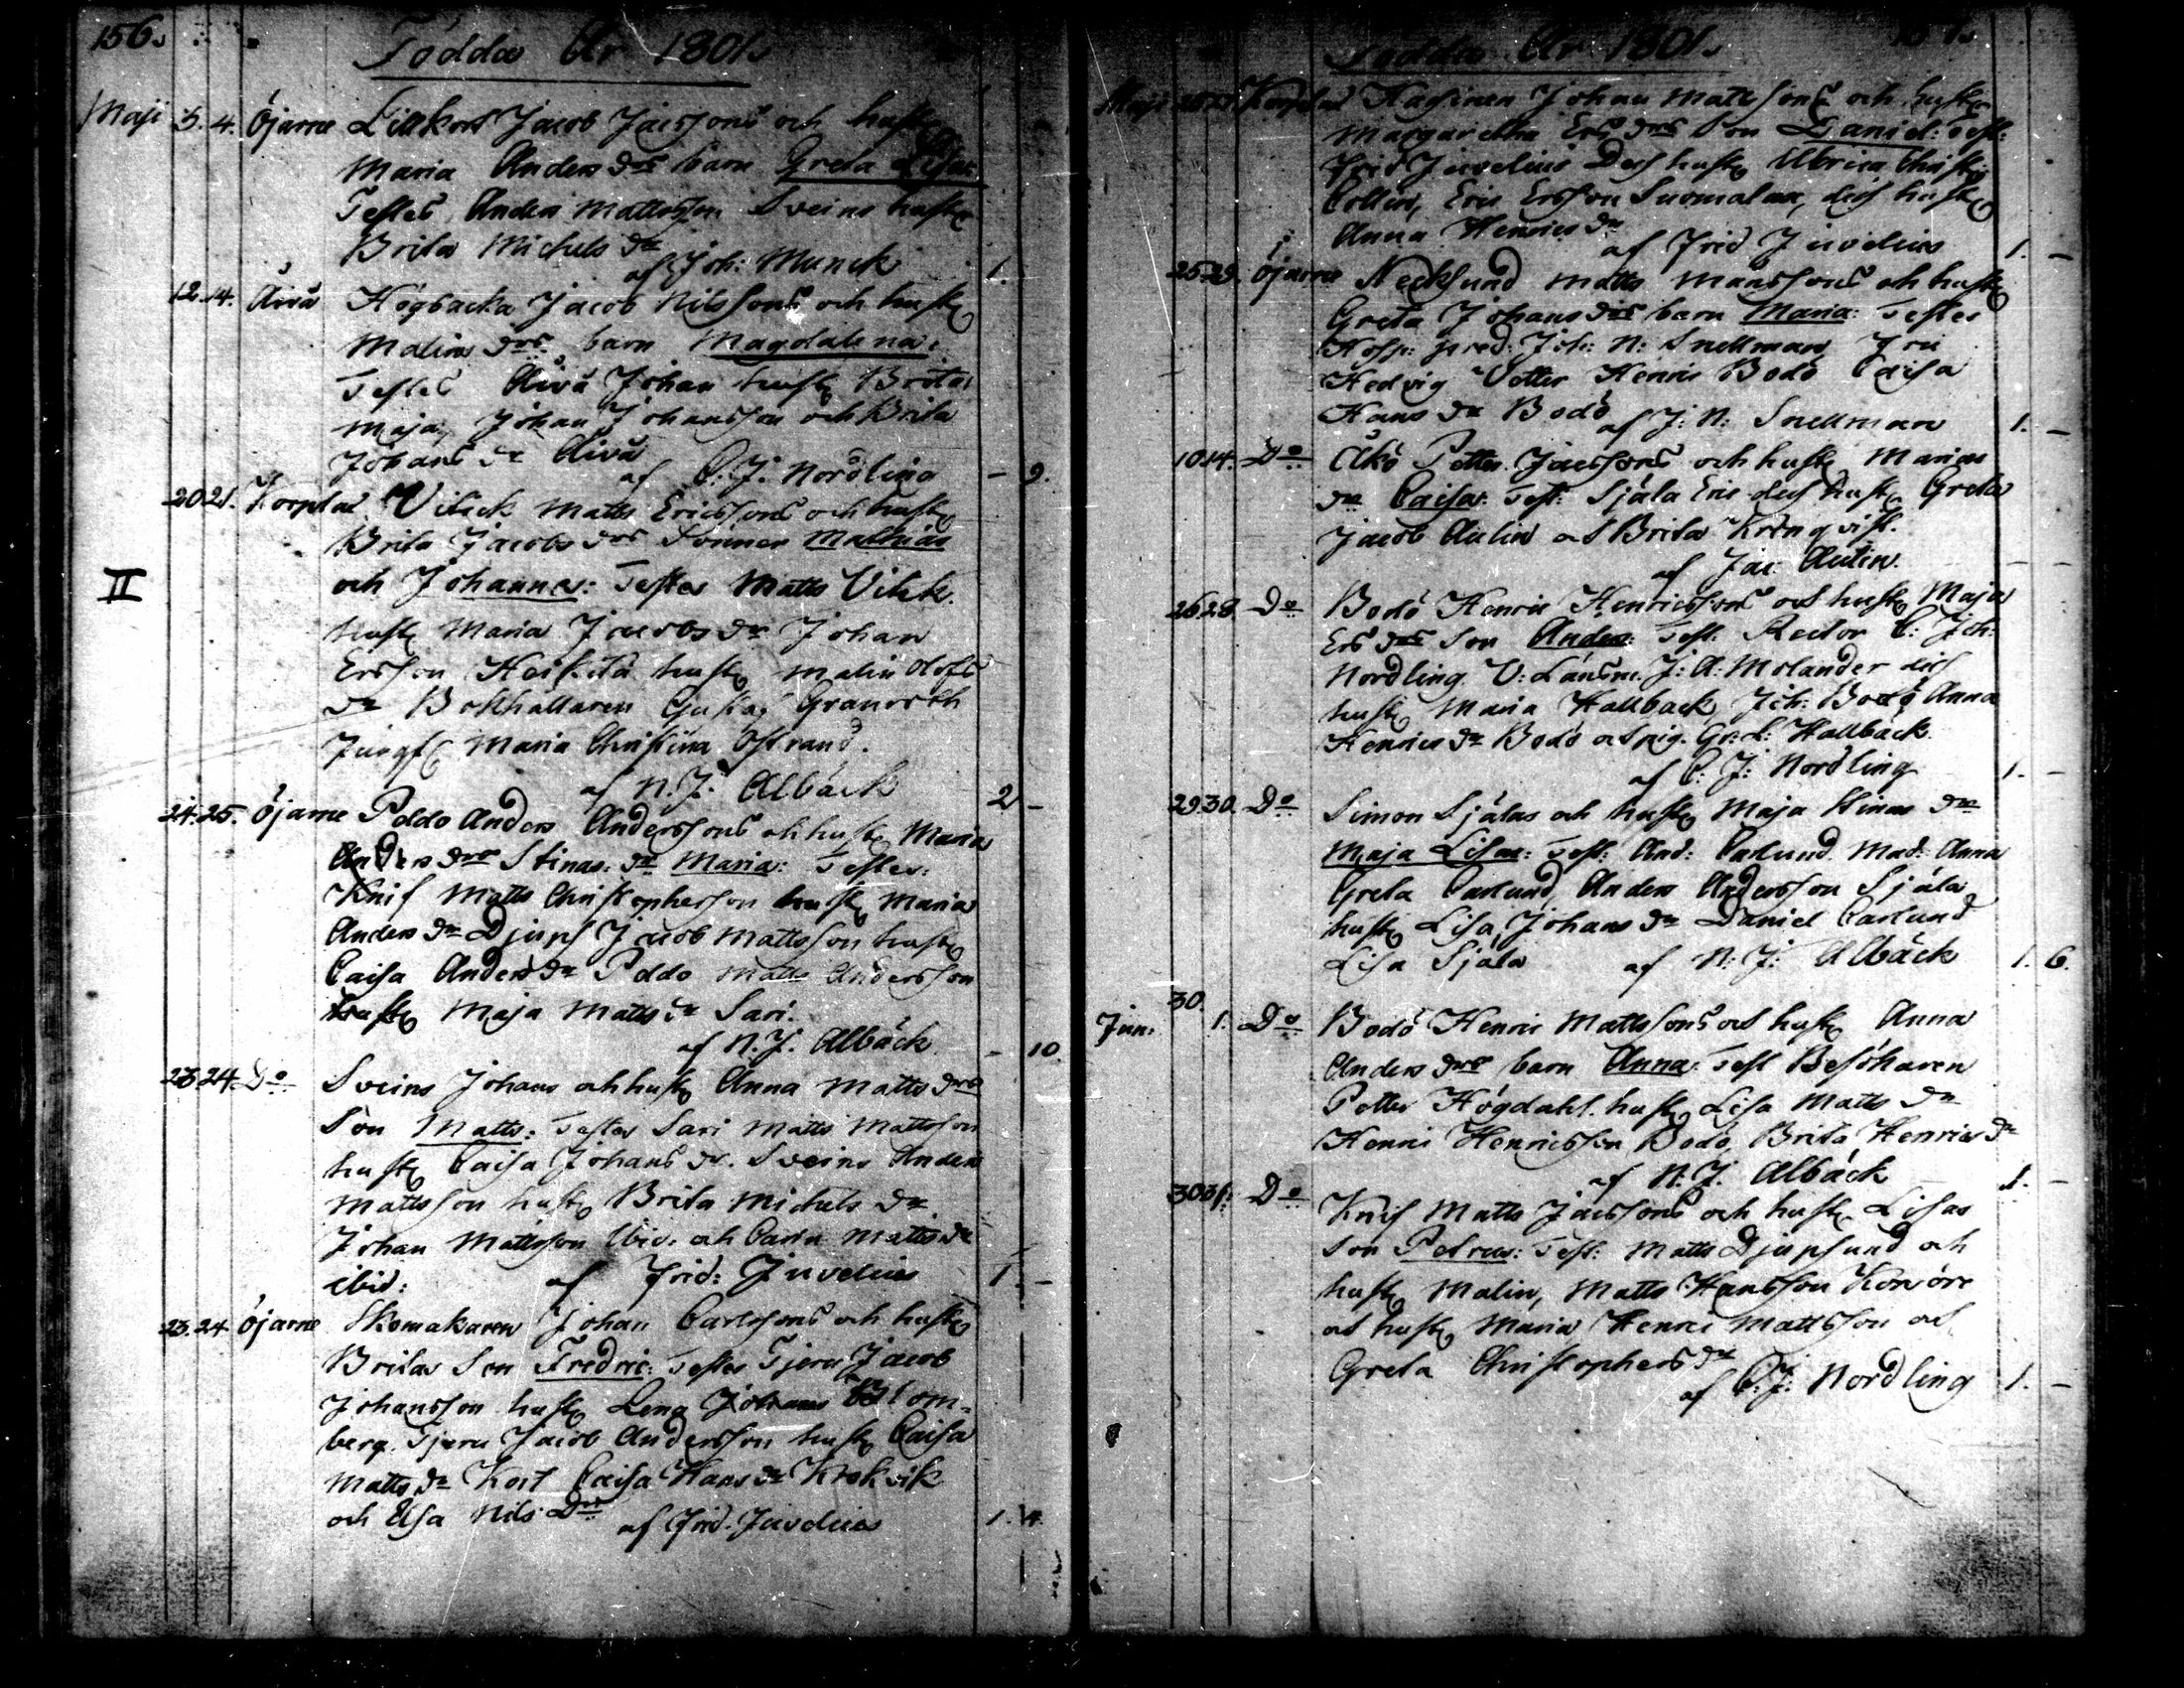 156.
Födda År 1801.
Maji 3. 4. Öjarne Lillkort Jacob Jacssons och hustr
Maria Anders drs barn Greta Lisa:
Testes Anders Mattsson Sveins hustr
Brita Michels dr
af Joh: Munck 1.
12. 14. Åivo Högbacka Jacob Nilssons och hustr
Malins drs barn Magdalena:
Testes Åivo Johan hustr Brita
Maja, Johan Johansson och Brita
Johans dr Åivo
af C. J. Nordling - 9.
20 21. Korplax Vitick Matts Ericssons och hustr
Brita Jacobs drs Sönner Mathias
och Johannes: Testes Matts Vitik
hustr Maria Jacobs dr Johan
Ersson Heikilä hustr Malin Olofs
dr Bokhållaren Gustaf Granroth
Jungfr Maria Christina Östrand.
II
af N. J. Albäck 2 -
24. 25. Öjarne Peddo Anders Anderssons och hustr Maria
Anders drs Stinas: dr Maria: Testes:
Knif Matts Christophersson hustr Maria
Anders dr Djups Jacob Mattsson hustr
Caisa Anders dr Peddo Matts Andersson
hustr Maja Matts dr Sari.
af N. J. Albäck - 10.
23 24 Do Sveins Johans och hustr Anna Matts drs
Son Matts: Testes Sari Matts Mattsson
hustr Caisa Johans dr. Sveins Anders
Mattsson hustr Brita Michels dr
Johan Mattsson ibid: och Carin Matts dr
ibid: af Frid: Juvelius 1 -
23. 24 Öjarne Skomakaren Johan Carlssons och hustr
Britas Son Fredric: Testes Tjeru Jacob
Johansson hustr Lena Johans Blom-
berg. Tjeru Jacob Andersson hustr Caisa
Matts dr Kort Caisa Hans dr Krokvik
och Elsa Nils Dr af Frid. Juvelius 1. 4.
Födda År 1801.
Maji Korplax Johan Mattssons och hustr
Margaretha Ers drs Son Daniel: Test:
Frid Juvelius Dess hustr Ulrica Christ:
Collin, Eric Ersson Suomalax, dess hustr
Anna Henrics dr
af Frid Juvelius 1. -
25. 29. Öjarne Necksund Matts Månssons och hustr
Greta Johans drs barn Maria: Testes
Hosp: pred: Joh: N: Snellman, Fru
Hedvig Vetter Henric Bodö Caisa
Hans dr Bodö
af J: N: Snellman 1. -
10 14. Do Åkö Petter Jacssons och hustr Marias
dr Caisa: Test: Själa Eric dess hustr Greta
Jacob Aulin och Brita Krönqvist.
af Jac. Aulin. - -
26 28. Do Bodö Henric Henricssons och hustr Maja
Ers drs Son Anders: Test: Rector C: Joh:
Nordling V: Länsm. J: A: Molander dess
hustr Maria Hallbäck Joh: Bodö Anna
Henrics dr Bodö och pig. Gr: L: Hallbäck.
af C: J: Nordling 1. -
29. 30. Do Simon Själas och hustr Maja Stinas dr
Maja Lisa: Test: And: Carlund Mad: Anna
Greta Carlund, Anders Andersson Själa
hustr Lisa Johans dr Daniel Carlund
Lisa Själa af N: J: Albäck 1. 6.
30.
Jun: 1. Do Bodö Henric Mattssons och hustr Anna
Anders drs barn Anna Test Besökaren
Petter Högdahl hustr Lisa Matts dr
Henric Henricsson Bodö, Brita Henrics dr
af N: J. Albäck 1. -
30 31. Do Knif Matts Jacssons och hustr Lisas
Son Petrus: Test: Matts Djupsund och
hustr Malin, Matts Hansson Konöre
och hustr Maria Henric Mattsson och
Greta Christophers dr
af C. J: Nordling 1. -